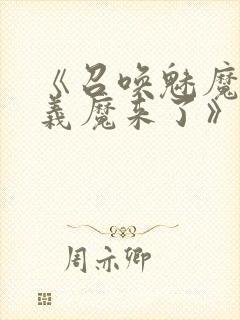 《召唤魅魔
义魔来了》
周亦卿